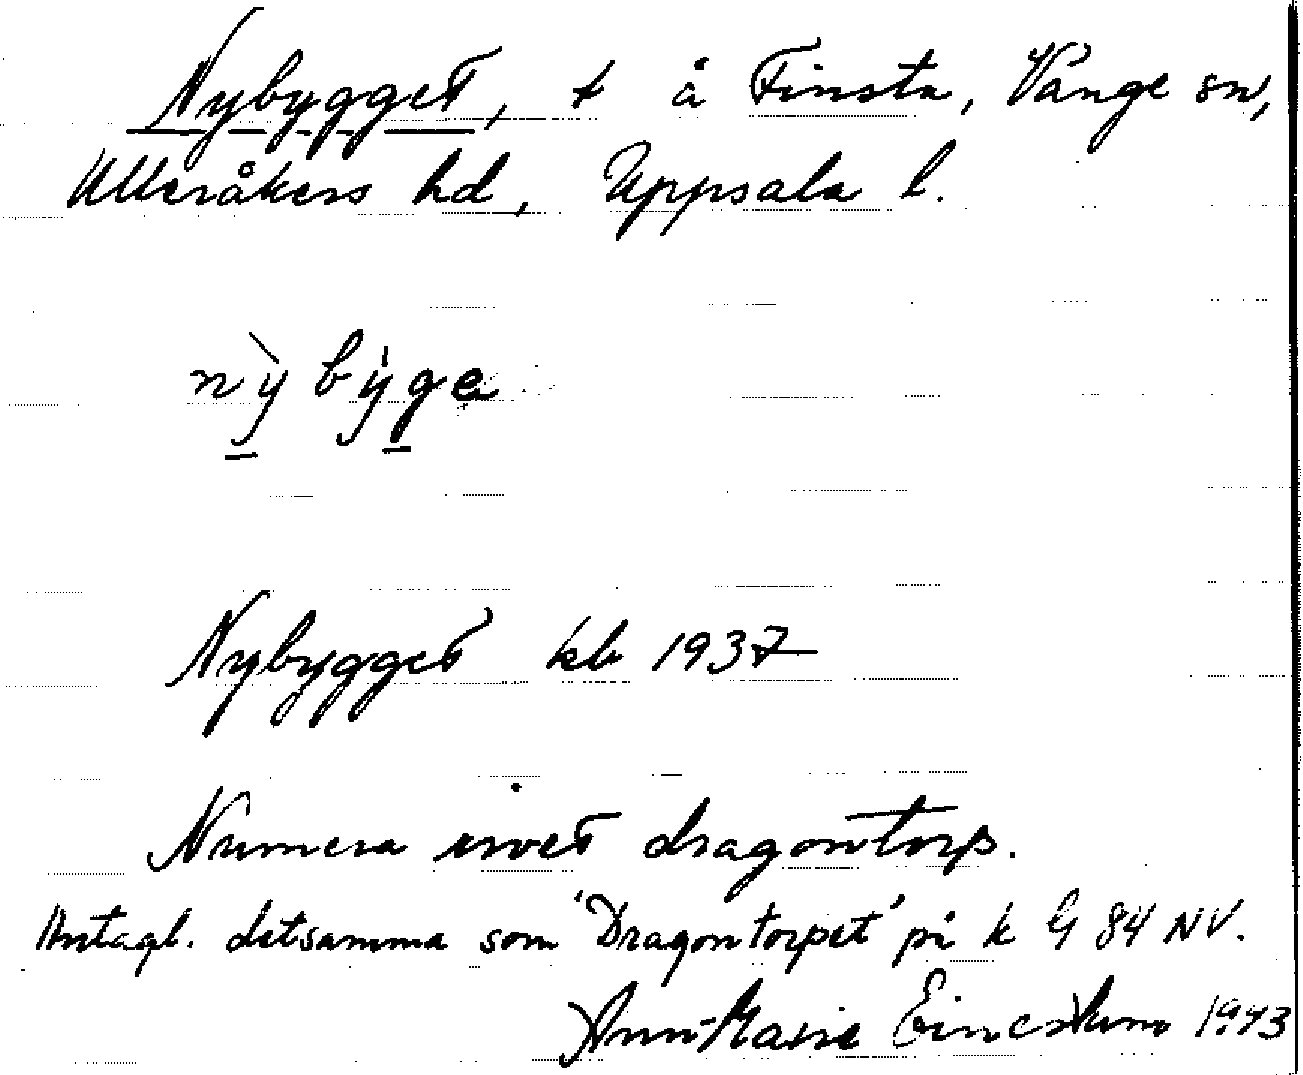 Nybygget, t å Finsta, Vänge sn,
Ulleråkers hd, Uppsala l.
nỳbỳgə
Nybygget kb 1937
Numera rivet dragontorp.
Antagl. detsamma som 'Dragontorpet' på k G 84 NV.
Ann-Marie 1943